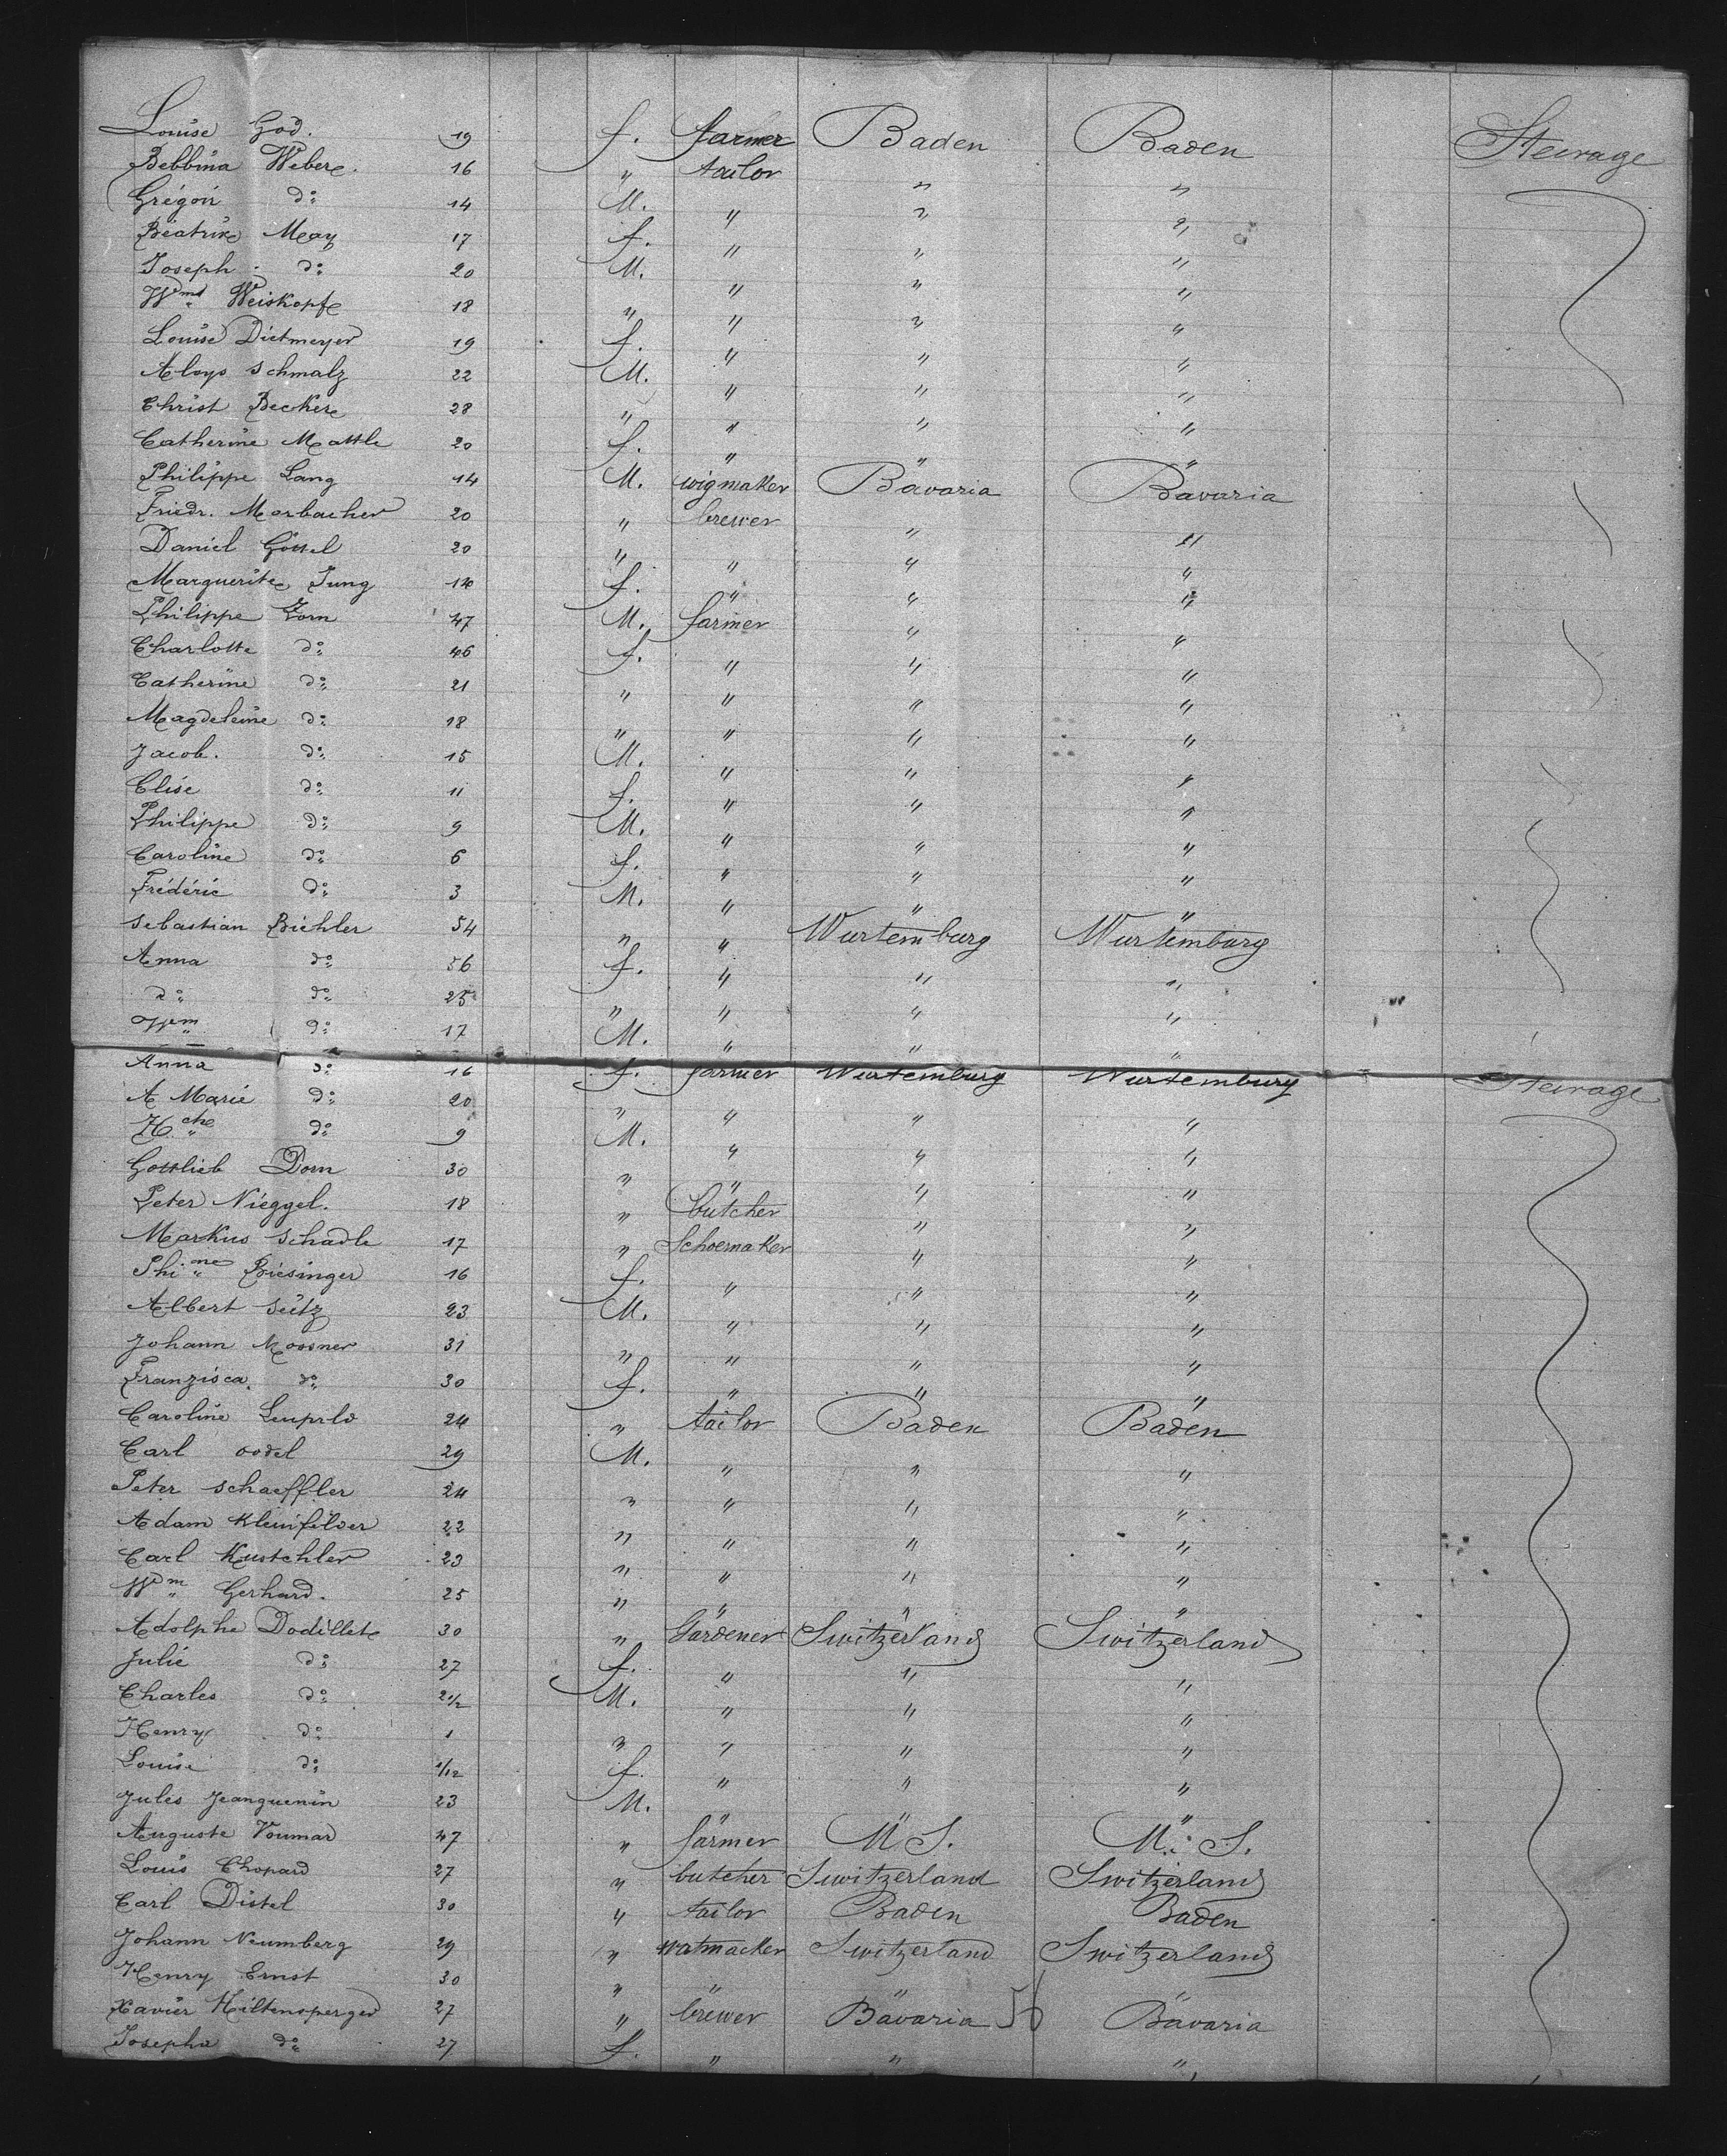 Louise God. 19 f. farmer Baden Baden Steerage
Bebbina Weber. 16 " tailor " "
Grégoir do 14 M. " " "
Béatrix May 17 f. " " "
Joseph do 20 M. " " "
Weiskopf 18 " " " "
Louise Dietmeyer 19 f. " " "
Aloys Schmalz 22 M. " " "
Christ Becker 28 " " " "
Catherine Mattle 20 f. " " "
Philippe Lang 14 M. wigmaker Bavaria Bavaria
Friedr. Morbacher 20 " brewer " "
Daniel Göttel 20 " " " "
Marguerite Jung f. " " "
Philippe Zorn 47 M. farmer " "
Charlotte do 46 f. " " "
Catherine do 21 " " " "
Magdeleine do 18 " " " "
Jacob. do 15 M. " " "
Elise do 11 f. " " "
Philippe do 9 M. " " "
Caroline do 6 f. " " "
Frédéric do 3 M. " " "
Sebastian Biehler 54 " " Wurtemburg Wurtemburg
Anna do 56 f. " " "
do do 25 " " " "
Wm do 17 M. " " "
Anna do 16 f. farmer Wurtemburg Wurtemburg Steerage
A Marie do 20 " " " "
do 9 M. " " "
Gottlieb Dorn 30 " " " "
Peter Nieggel. 18 " butcher " "
Markus Schadle 17 " Schoemaker " "
Phine Biesinger 16 f. " " "
Albert Seitz 23 M. " " "
Johann Mossner 31 " " " "
Franzisca do 30 f. " " "
Caroline Leuprld 24 " tailor Baden Baden
Carl oodel 29 M. " " "
Peter Schaeffler 24 " " " "
Adam Kleinfelder 22 " " " "
Carl Kustchler 23 " " " "
Wm Gerhard. 25 " " " "
Adolphe Dodillet 30 " Gardener Switzerland Switzerland
Julie do 27 f. " " "
Charles do 2 1/2 M. " " "
Henry do 1 " " " "
Louise do 1/12 f. " " "
Jules Jeanguenin 23 M. " " "
Auguste Voumard 47 " farmer U. S. U. S.
Louis Chopard 27 " butcher Switzerland Switzerland
Carl Distel 30 " tailor Baden Baden
Johann Neumberg 29 " watmacker Switzerland Switzerland
Henry Ernst 30 " " " "
Xavier Hiltensperger 27 " brewer Bavaria 56 Bavaria
Josepha do 27 f. " " "